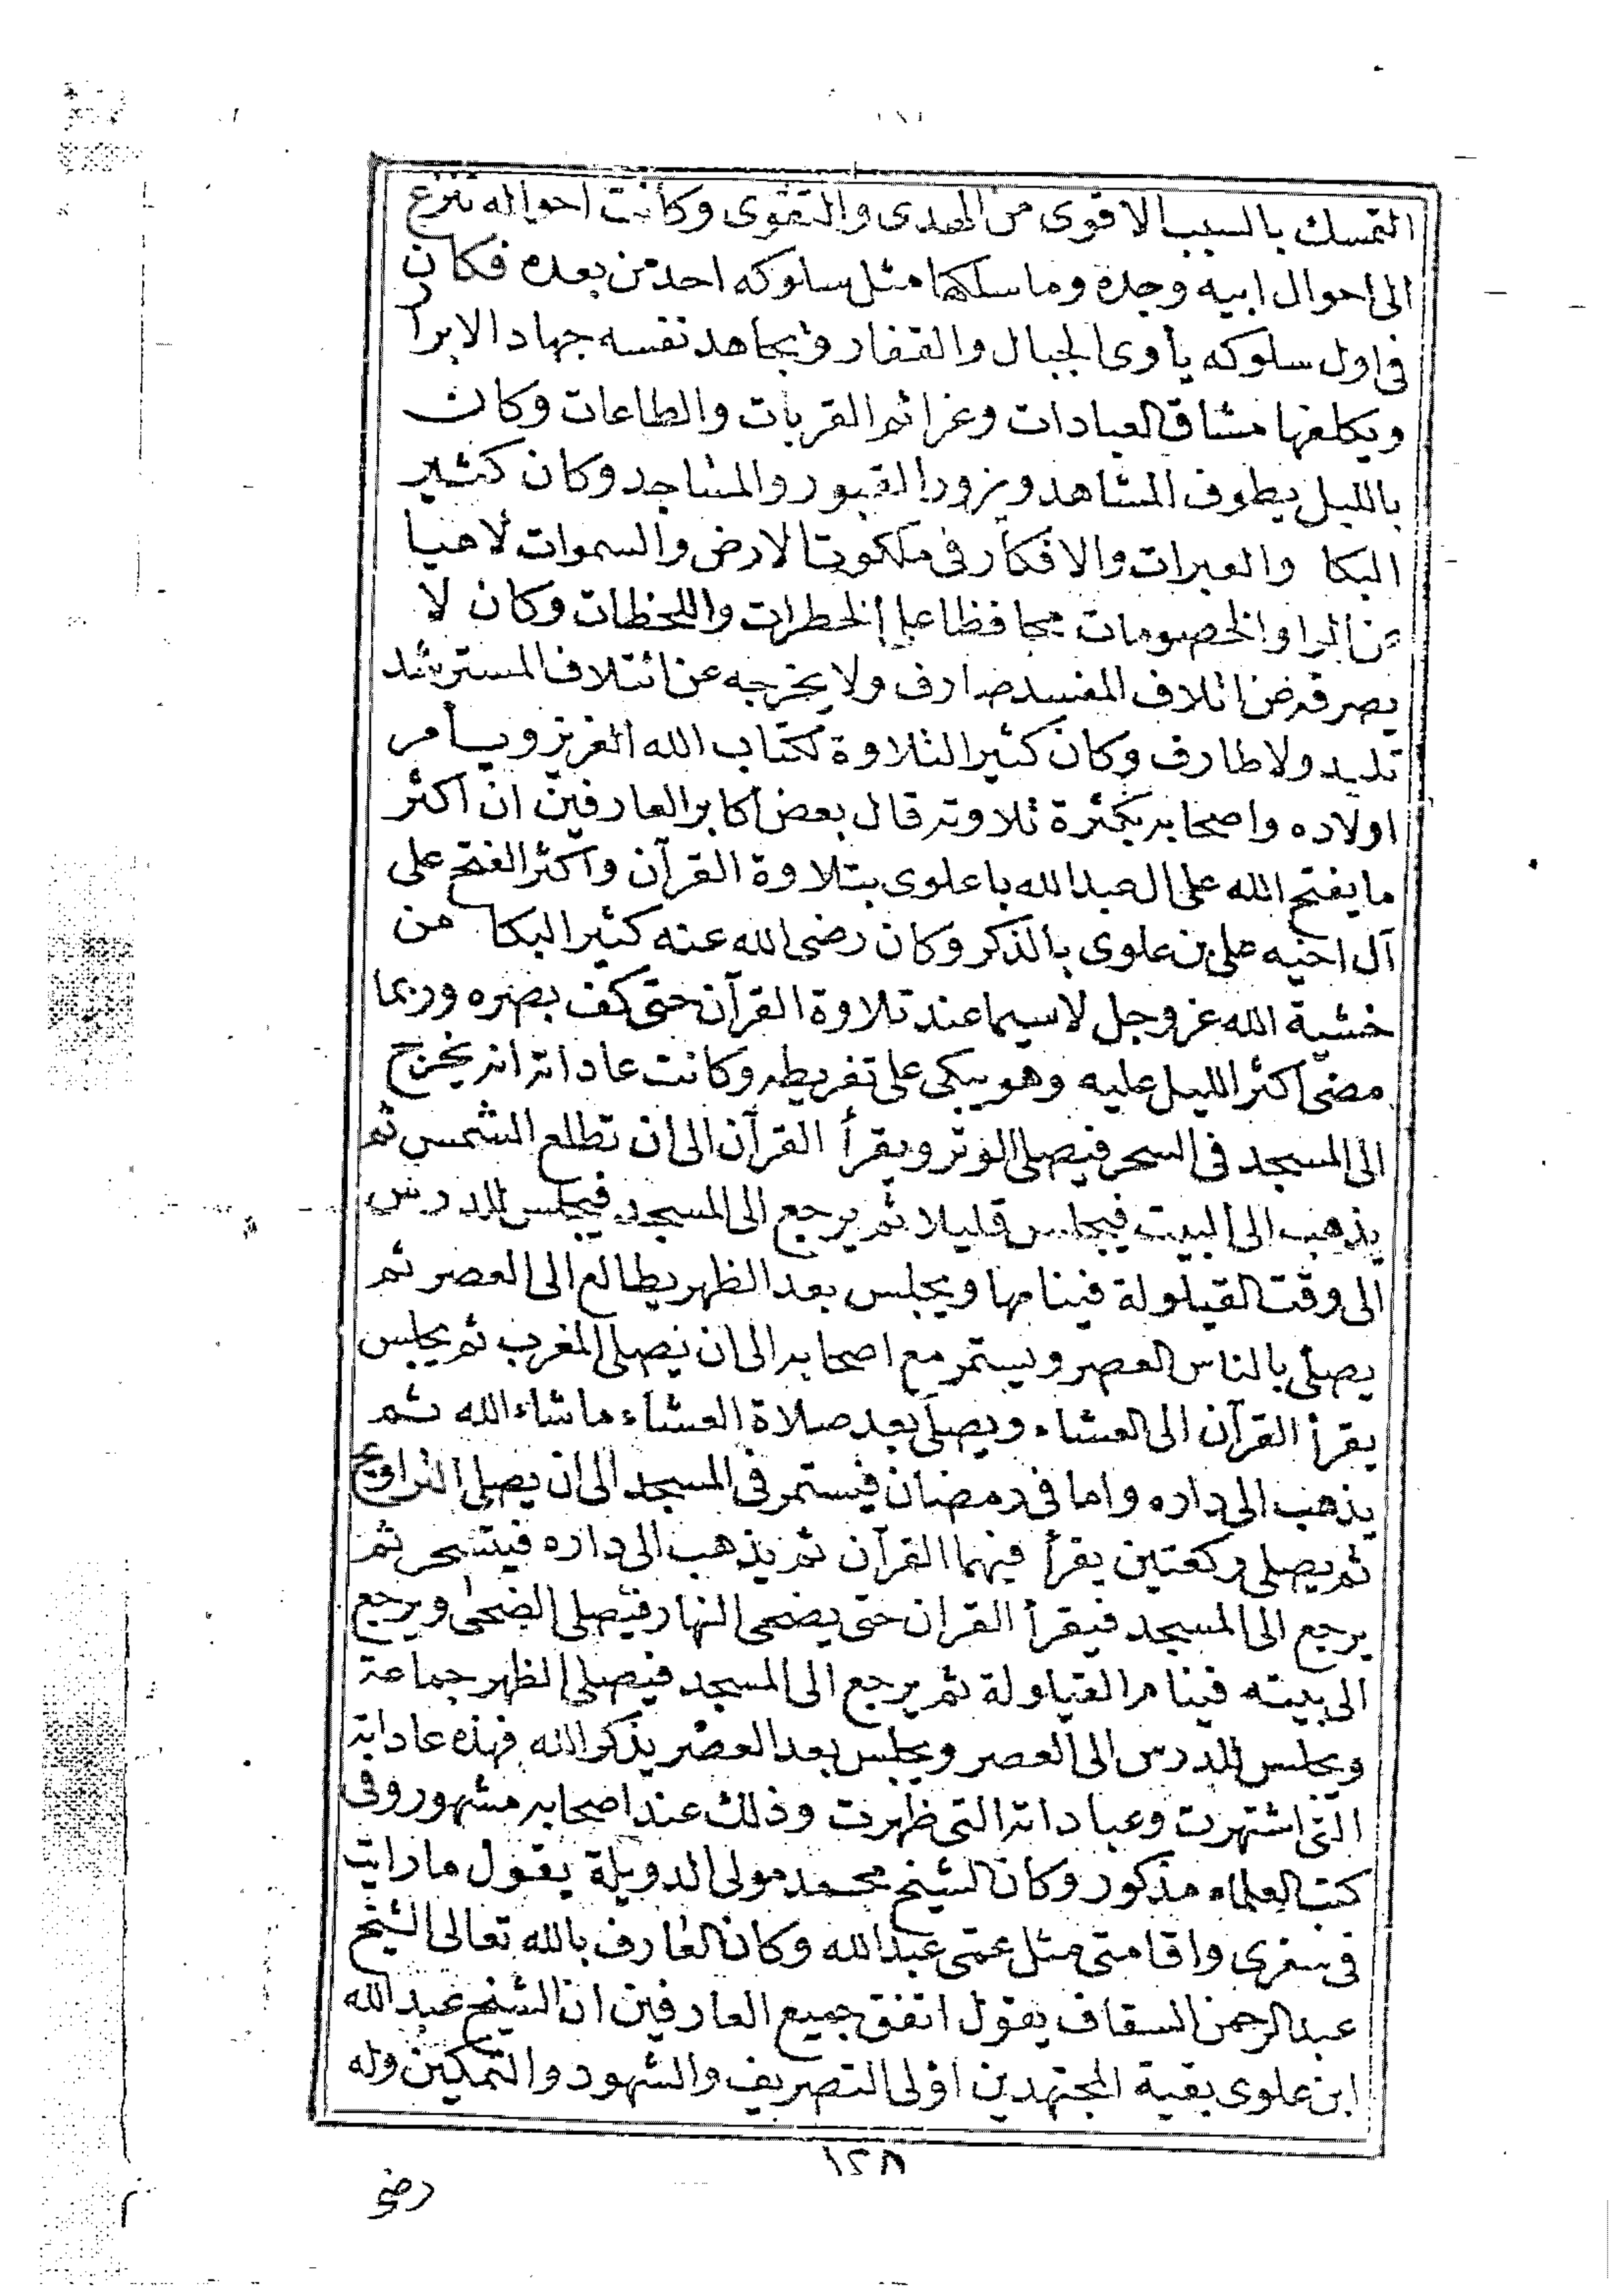 التمسك بالسبب الاقوى من الهدى والتقوى وكانت احواله تنزع
الى احوال ابيه وجده وما سلكها مثل سلوكه احد من بعده فكان
فى اول سلوكه يأوى الجبال والقفار ويجاهد نفسه جهاد الابرار
ويكلفها مشاق العبادات وعزائم القربات والطاعات وكان
بالليل يطوف المشاهد ويزور القبور والمساجد وكان كثير
البكا والعبرات والافكار فى ملكوت الارض والسموات لاهيا
عن المرا والخصومات محافظا على الخطرات واللحظات وكان لا
يصرفه عن اتلاف المفسد صارف ولا يخرجه عن ائتلاف المسترشد
تليد ولا طارف وكان كثير التلاوة لكتاب الله العزيز ويأمر
اولاده واصحابه بكثرة تلاوته قال بعض اكابر العارفين ان اكثر
ما يفتح الله على ال عبد الله باعلوى بتلاوة القرآن واكثر الفتح على
آل اخيه على بن علوى بالذكر وكان رضى الله عنه كثير البكا من
خشية الله عز وجل لاسيما عند تلاوة القرآن حتى كف بصره وربما
مضى اكثر الليل عليه وهو يبكى على تفريطه وكانت عاداته انه يخرج
الى المسجد فى السحر فيصلى الوتر ويقرأ القرآن الى ان تطلع الشمس ثم
يذهب الى البيت فيجلس قليلا ثم يرجع الى المسجد فيجلس للدرس
الى وقت القيلولة فينامها ويجلس بعد الظهر يطالع الى العصر ثم
يصلى بالناس العصر ويستمر مع اصحابه الى ان يصلى المغرب ثم يجلس
يقرأ القرآن الى العشاء ويصلى بعد صلاة العشاء ماشاء الله ثم
يذهب الى داره واما فى رمضان فيستمر فى المسجد الى ان يصلى التراويح
ثم يصلى ركعتين يقرأ فيهما القرآن ثم يذهب الى داره فيتسحر ثم
يرجع الى المسجد فيقرأ القران حتى يضحى النهار فيصلى الضحى ويرجع
الى بيته فينام القيلولة ثم يرجع الى المسجد فيصلى الظهر جماعة
ويجلس للدرس الى العصر ويجلس بعد العصر يذكر الله فهذه عاداته
التى اشتهرت وعباداته التى ظهرت وذلك عند اصحابه مشهور وفى
كتب العلماء مذكور وكان الشيخ محمد مولى الدويلة يقول ما رايت
فى سفرى واقامتى مثل عمى عبد الله وكان العارف بالله تعالى الشيخ
عبد الرحمن السقاف يقول اتفق جميع العارفين ان الشيخ عبد الله
ابن علوى بقية المجتهدين اولى التصريف والشهود والتمكين وله
١٢٨
رضى